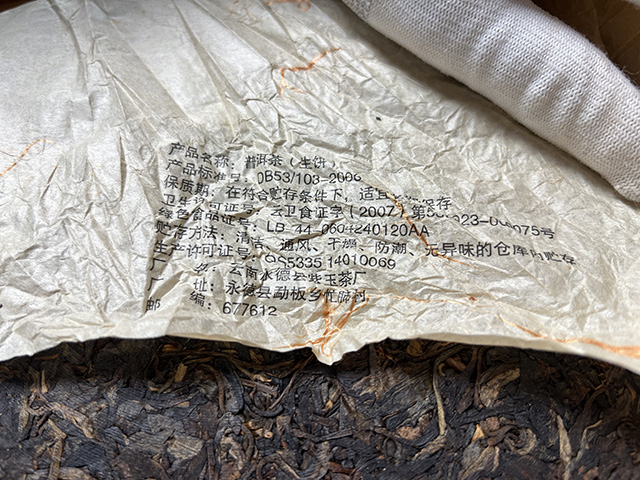 产品名称：普洱茶（生饼）
产品标准号：DB53/103-2006
保质期：在符合贮存条件下，适宜 保存
卫生许可证号：云卫食证字（2007）第 923- 075号
绿色食品证号：LB-44-0604240120AA
贮存方法：清洁、通风、干燥、防潮、无异味的仓库内贮存
生产许可证号：QS5335 14010069
厂 名：云南永德县紫玉茶厂
厂 址：永德县勐板乡忙肺村
邮 编：677612